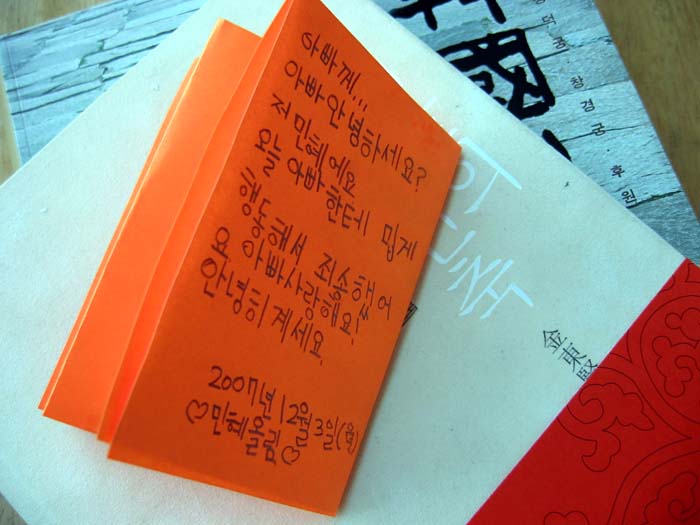 아빠께...
아빠안녕하세요?
저 민혜에요
오늘 아빠한테 밉게
행동해서 죄송했어
요 아빠사랑해요!
안녕히 계세요.
2007년 12월 3일(월)
♡민혜올림♡
國
창경궁·후원
金東